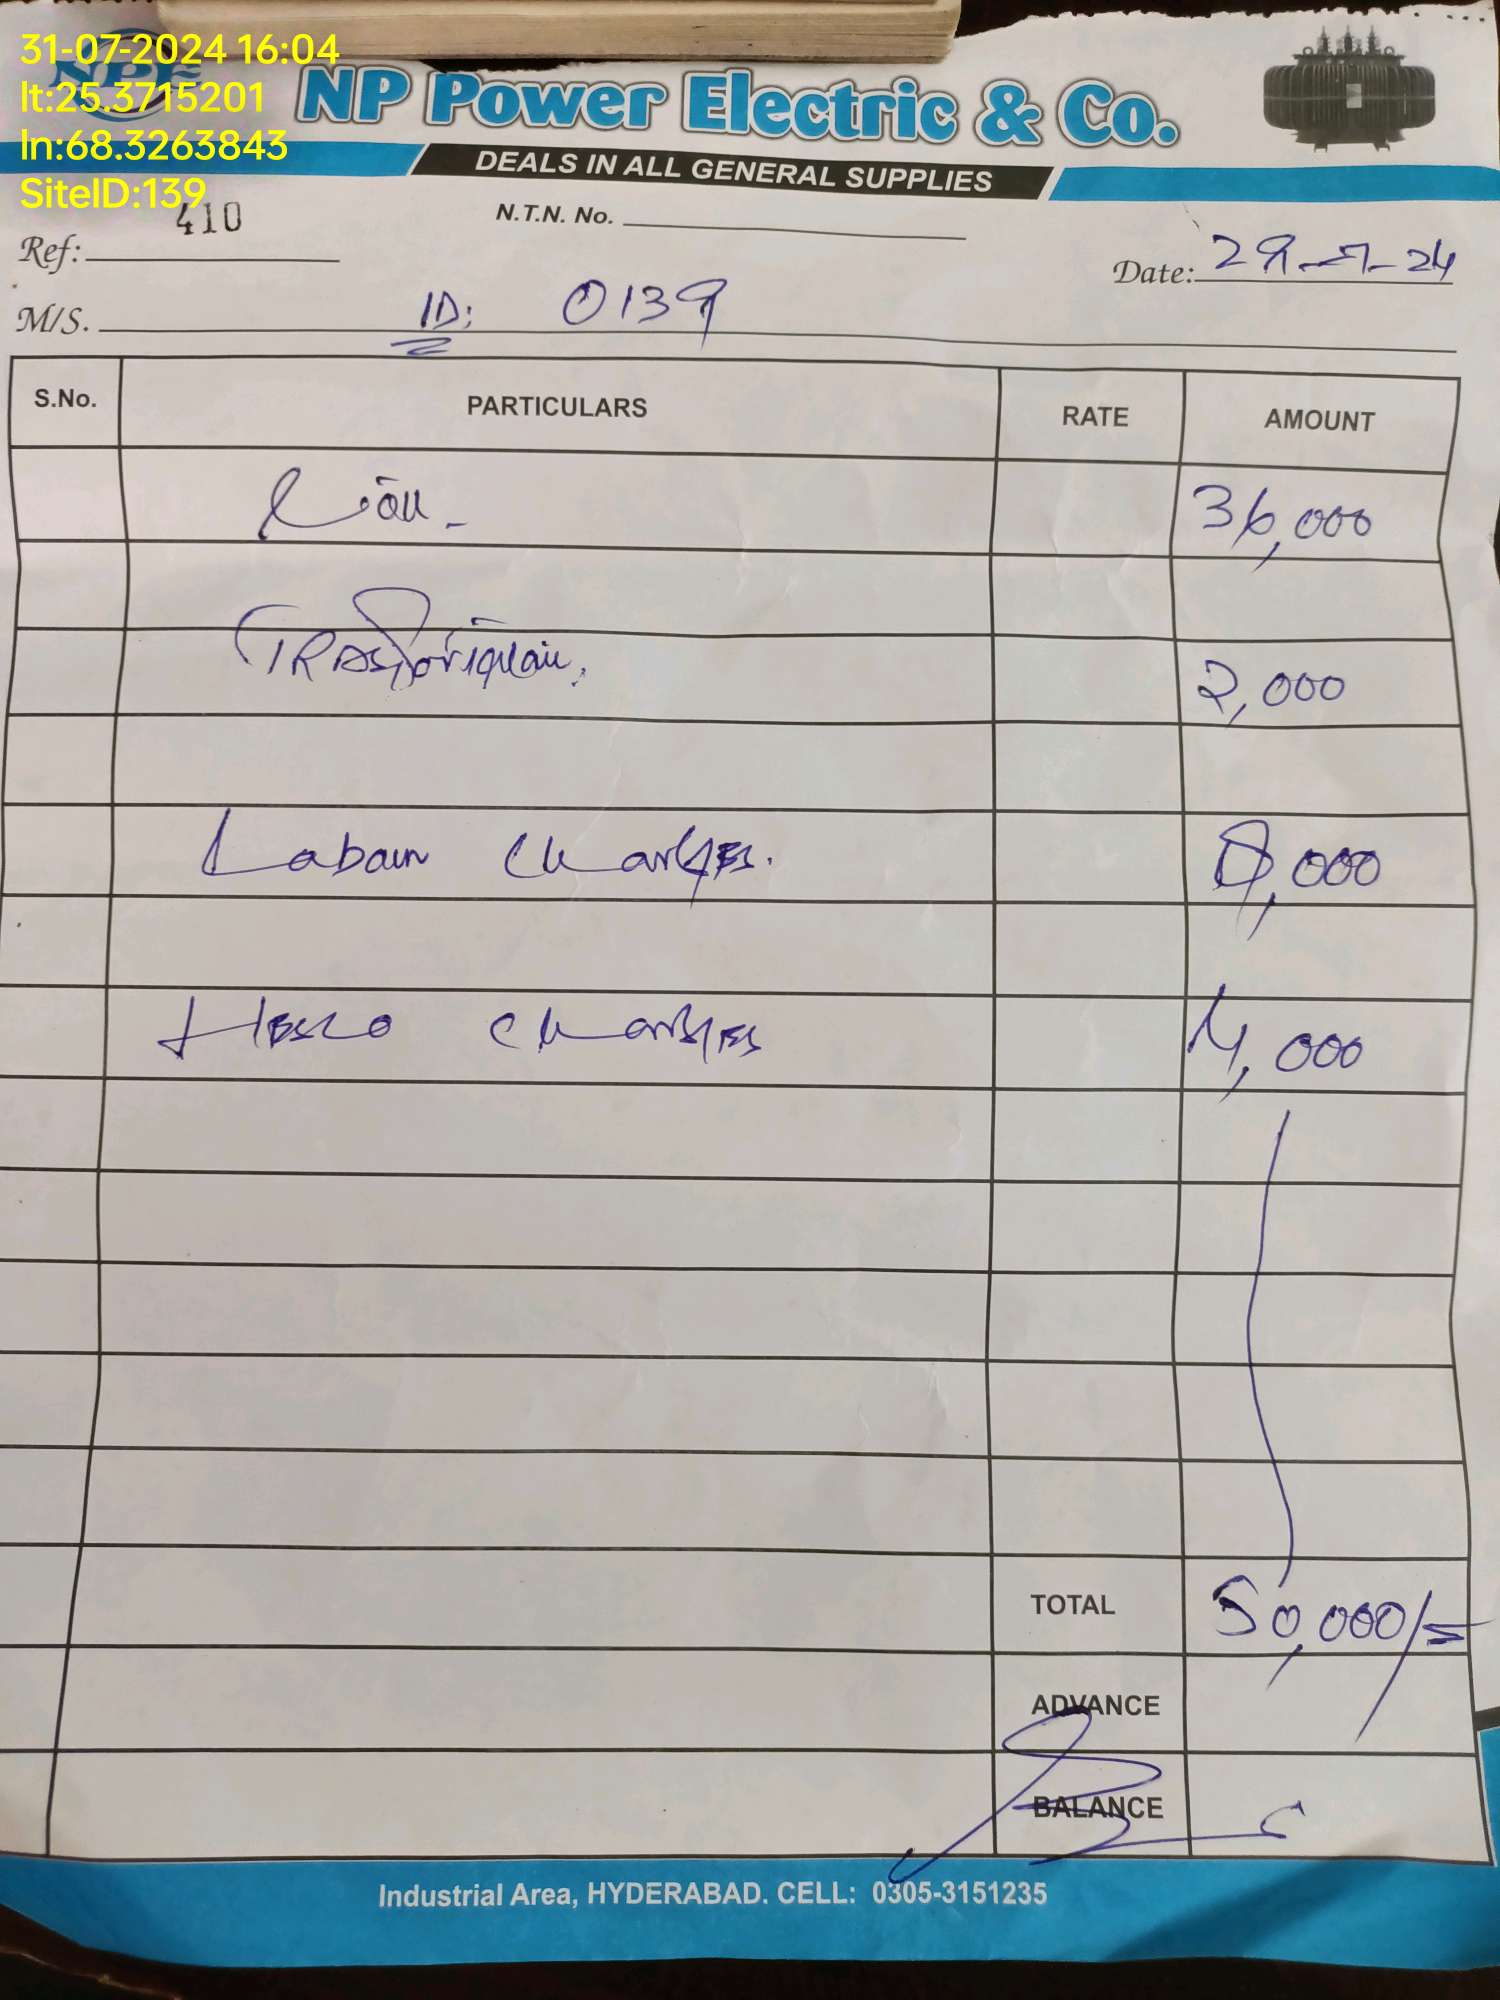 31-07-2024 16:04
lt:25.3715201
ln:68.3263843
SiteID:139
NPE
NP Power Electric & Co.
DEALS IN ALL GENERAL SUPPLIES
Ref: 410
N.T.N. No.
Date: 29-7-24
M/S. ID: 0139
S.No. PARTICULARS RATE AMOUNT
36,000
2,000
Labour Charges. 8,000
Hesco Charges 4,000
TOTAL 50,000/=
ADVANCE
BALANCE
Industrial Area, HYDERABAD. CELL: 0305-3151235